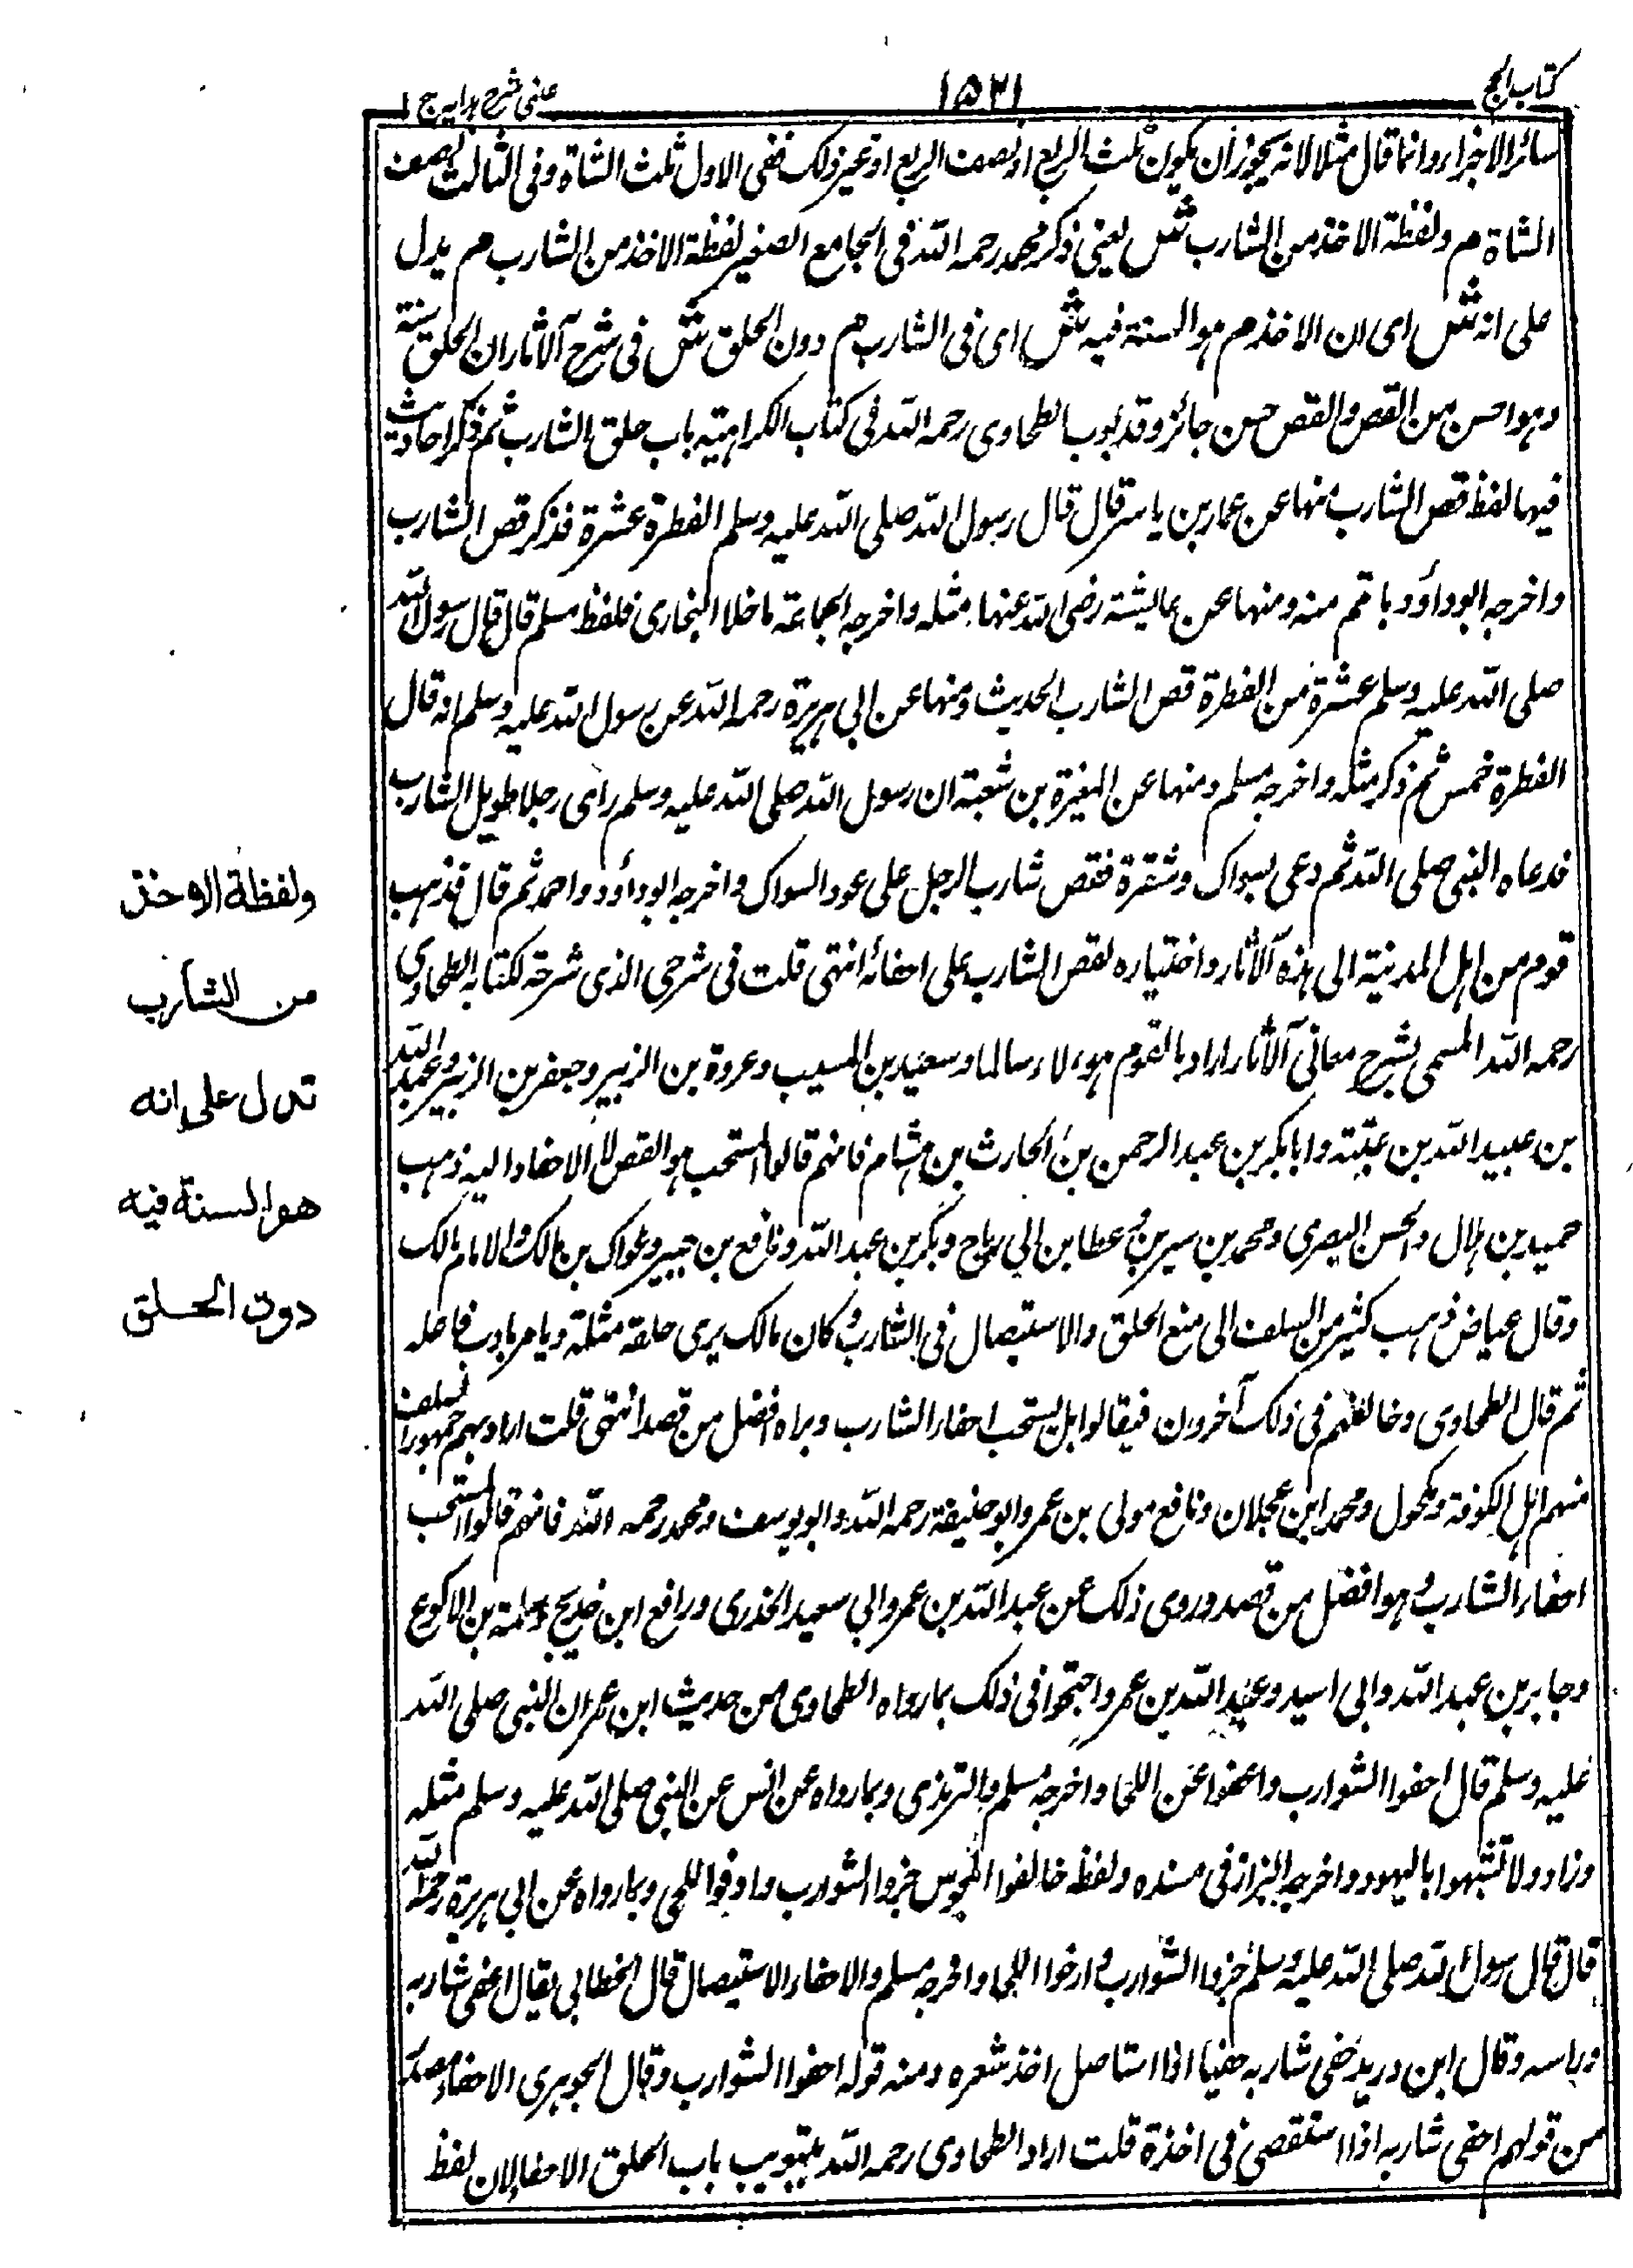 كتاب الحج
١٥٢١
عينى شرح هدايه ج ١
سائر الاجزاء وانما قال مثلا لانه يجوز ان يكون ثلث الربع او نصف الربع او غير ذلك ففى الاول ثلث الشاة وفى الثالث نصف
الشاة م ولفظة الاخذ من الشارب ش يعنى ذكر محمد رحمه الله فى الجامع الصغير لفظة الاخذ من الشارب م يدل
على انه ش اى ان الاخذ م هو السنة فيه ش اى فى الشارب م دون الحلق ش فى شرح الآثار ان الحلق سنة
وهو احسن من القص والقص حسن جائز وقد بوب الطحاوى رحمه الله فى كتاب الكراهية باب حلق الشارب ثم ذكر احاديث
فيها لفظ قص الشارب منها عن عمار بن ياسر قال قال رسول الله صلى الله عليه وسلم الفطرة عشرة فذكر قص الشارب
واخرجه ابو داؤد باتم منه ومنها عن عايشة رضى الله عنها مثله واخرجه الجماعة ماخلا البخارى فلفظ مسلم قال قال رسول الله
صلى الله عليه وسلم عشرة من الفطرة قص الشارب الحديث ومنها عن ابى هريرة رحمه الله عن رسول الله عليه وسلم انه قال
الفطرة خمس ثم ذكر مثله واخرجه مسلم ومنها عن المغيرة بن شعبة ان رسول الله صلى الله عليه وسلم راى رجلا طويل الشارب
فدعاه النبى صلى الله ثم دعى بسواك وشفرة فقص شارب الرجل على عود السواك واخرجه ابو داؤد واحمد ثم قال فذهب
قوم من اهل المدينة الى هذه الآثار واختياره لقص الشارب على احفائه انتهى قلت فى شرحى الذى شرحته لكتابه الطحاوى
رحمه الله المسمى بشرح معانى الآثار اراد بالقوم هولاء سالما وسعيد بن المسيب وعروة بن الزبير وجعفر بن الزبير وعبيد الله
بن عبيد الله بن عتبة وابا بكر بن عبد الرحمن بن الحارث بن هشام فانهم قالوا المستحب هو القص لا الاحفاء واليه ذهب
حميد بن هلال والحسن البصرى ومحمد بن سيرين وعطا بن ابى رباح وبكر بن عبد الله ونافع بن جبير وعواك بن مالك والامام مالك
وقال عياض ذهب كثير من السلف الى منع الحلق والاستيصال فى الشارب وكان مالك يرى حلقه مثلة ويامر بادب فاعله
ثم قال الطحاوى وخالفهم فى ذلك آخرون فيقالوا بل يستحب احفاء الشارب ويراه افضل من قصه انتهى قلت اراد بهم جمهور السلف
منهم اهل الكوفة ومكحول ومحمد ابن عجلان ونافع مولى بن عمر وابو حنيفة رحمه الله وابو يوسف ومحمد رحمه الله فانهم قالوا المستحب
احفاء الشارب وهو افضل من قصه وروى ذلك عن عبد الله بن عمر وابى سعيد الخدرى ورافع ابن خديج وسلمة بن الاكوع
وجابر بن عبد الله وابى اسيد وعبد الله بن عمر واحتجوا فى ذلك بما رواه الطحاوى من حديث ابن عمر ان النبى صلى الله
عليه وسلم قال احفوا الشوارب واعفوا عن اللحا واخرجه مسلم والترمذى وبما رواه عن انس عن النبى صلى الله عليه وسلم مثله
وزاد ولا تشبهوا باليهود واخرجه البزاز فى مسنده ولفظ خالفوا المجوس جزوا الشوارب واوفوا اللحى وبما رواه عن ابى هريرة رحمه الله
قال قال رسول الله صلى الله عليه وسلم جزوا الشوارب وارخوا اللحا واخرجه مسلم والاحفاء الاستيصال قال الخطابى يقال احفى شاربه
وراسه وقال ابن دريد حفى شاربه حفيا اذا استاصل اخذ شعره ومنه قوله احفوا الشوارب وقال الجوهرى الاحفاء مصدر
من قولهم احفى شاربه اذا استقصى فى اخذة قلت اراد الطحاوى رحمه الله بتبويب باب الحلق الاحفا لان لفظ
ولفظة الاخذ
من الشارب
تدل على انه
هو السنة فيه
دون الحلق